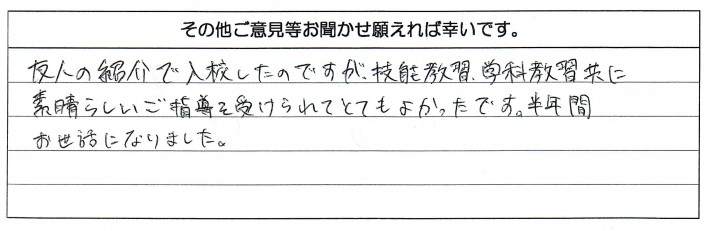 その他ご意見等お聞かせ願えれば幸いです。
友人の紹介で入校したのですが、技能教習、学科教習共に
素晴らしいご指導を受けられてとてもよかったです。半年間
お世話になりました。